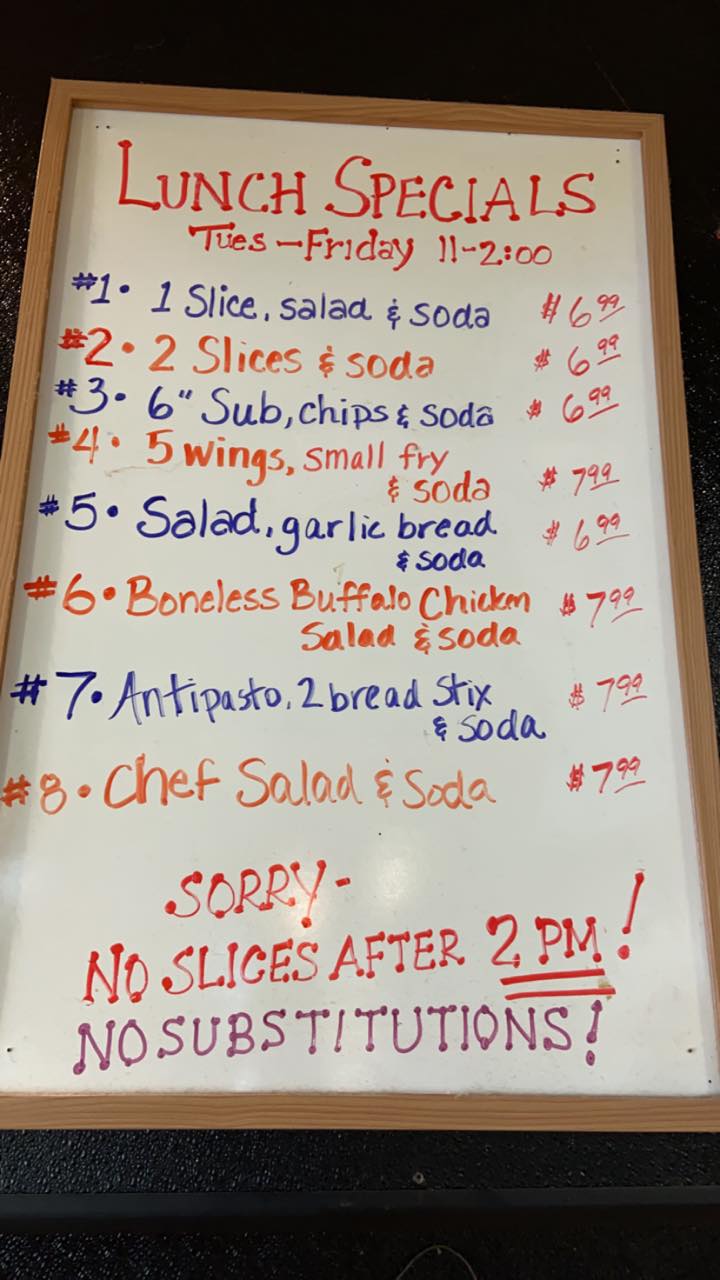 LUNCH SPECIALS
Tues - Friday 11-2:00
#1. 1 Slice, salad & soda $6.99
#2. 2 Slices & soda $6.99
#3. 6" Sub, chips & soda $6.99
#4. 5 wings, small fry
& soda $7.99
#5. Salad, garlic bread $6.99
& soda
#6. Boneless Buffalo Chicken $7.99
Salad & soda
#7. Antipasto, 2 bread Stix $7.99
& soda
#8. Chef Salad & Soda $7.99
SORRY-
NO SLICES AFTER 2 PM!
NO SUBSTITUTIONS!